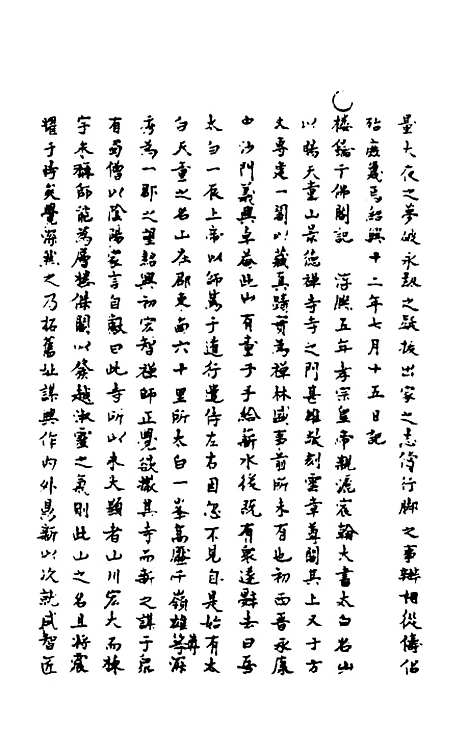 量大夜之夢破永劫之疑拔出家之志侍行脚之事辦相從儔侶
殆庶幾焉紹興十二年七月十五日記
樓鑰千佛閣記　淳熙五年孝宗皇帝親灑宸翰大書太白名山
以賜天童山景德禪寺寺之門甚雄敞刻雲章尊閣其上又于方
丈專建一閣以藏真蹟蔚為禪林盛事前所未有也初西晉永康
中沙門義興卓菴此山有童子予給薪水從既有衆遂辭去曰吾
太白一辰上帝以師篤于道行遣侍左右因忽不見自是始有太
白天童之名山在郡東南六十里所太白一峯高壓千嶺雄尊深
秀為一郡之望紹興初宏智禪師正覺欲撤其寺而新之謀于衆
有蜀僧以陰陽家言自獻曰此寺所以未大顯者山川宏大而棟
宇未稱師能為層樓傑閣以發越淑靈之氣則此山之名且將震
耀于時矣覺深然之乃拓舊址謀興作內外鼎新以次就咸智匠